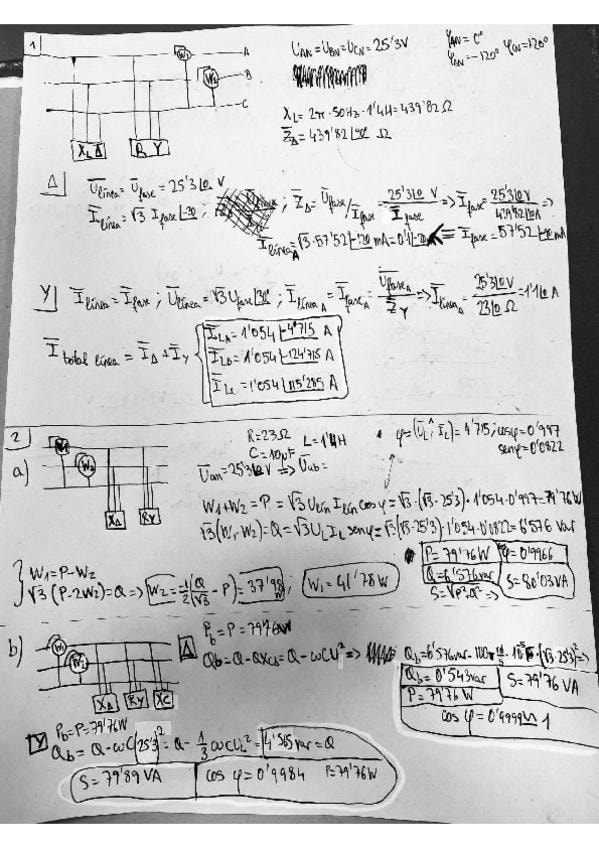 1
A
B
C
W1
W2
X_L Δ
R Y
U_AN = U_BN = U_CN = 25'3V
φ_AN = 0°
φ_AN = -120° φ_CN = 120°
X_L = 2π · 50Hz · 1'4H = 439'82 Ω
Z̄_Δ = 439'82 |90° Ω
Δ| Ū_línea = Ū_fase = 25'3|0 V
Ī_línea = √3 I_fase |-30 ; ; Z̄_Δ = Ū_fase/Ī_fase = 25'3|0 V / Ī_fase => Ī_fase = 25'3|0 V / 439'82|90 Ω =>
Ī_línea_A = √3 · 57'52|-120 mA = 0'1|-120 A <= Ī_fase = 57'52|-90 mA
Y| Ī_línea = Ī_fase ; Ū_línea = √3 U_fase |30° ; Ī_línea_A = Ī_fase_A = Ū_fase_A / Z̄_Y => Ī_línea_A = 25'3|0 V / 23|0 Ω = 1'1|0 A
Ī total línea = Ī_Δ + Ī_Y
Ī_LA = 1'054 |-4'715 A
Ī_LB = 1'054 |-124'715 A
Ī_LC = 1'054 |115'285 A
2
a)
W1
W2
X_Δ
R_Y
R = 23Ω
L = 1'4H
C = 10μF
Ū_an = 25'3|0 V => Ū_ab =
• φ = (Ū_L ^ Ī_L) = 4'715; cosφ = 0'997
senφ = 0'0822
W1 + W2 = P = √3 U_lín I_lin cosφ = √3 · (√3 · 25'3) · 1'054 · 0'997 = 79'76 W
√3 (W1 - W2) = Q = √3 U_L I_L senφ = √3 (√3 · 25'3) · 1'054 · 0'0822 = 6'576 Var
W1 = P - W2
√3 (P - 2W2) = Q => W2 = -1/2 (Q/√3 - P) = 37'98 W ;
W1 = 41'78 W
P = 79'76 W
φ = 0'9966
Q = 6'576 var
S = √P²Q² =>
S = 80'03 VA
b)
W1
W2
X_Δ
R_Y
XC
Δ
P_b = P = 79'76 W
Q_b = Q - Q_XCΔ = Q - ωCU² =>
Q_b = 6'576 var - 100π · 10⁻⁵ · (√3 · 25'3)² =>
Q_b = 0'543 var
P = 79'76 W
S = 79'76 VA
cos φ = 0'9999 ≈ 1
Y
P_b = P = 79'76 W
Q_b = Q - ωC (25'3)² = Q - 1/3 ωCU_L² = 4'565 var = Q
S = 79'89 VA
cos φ = 0'9984
P = 79'76 W